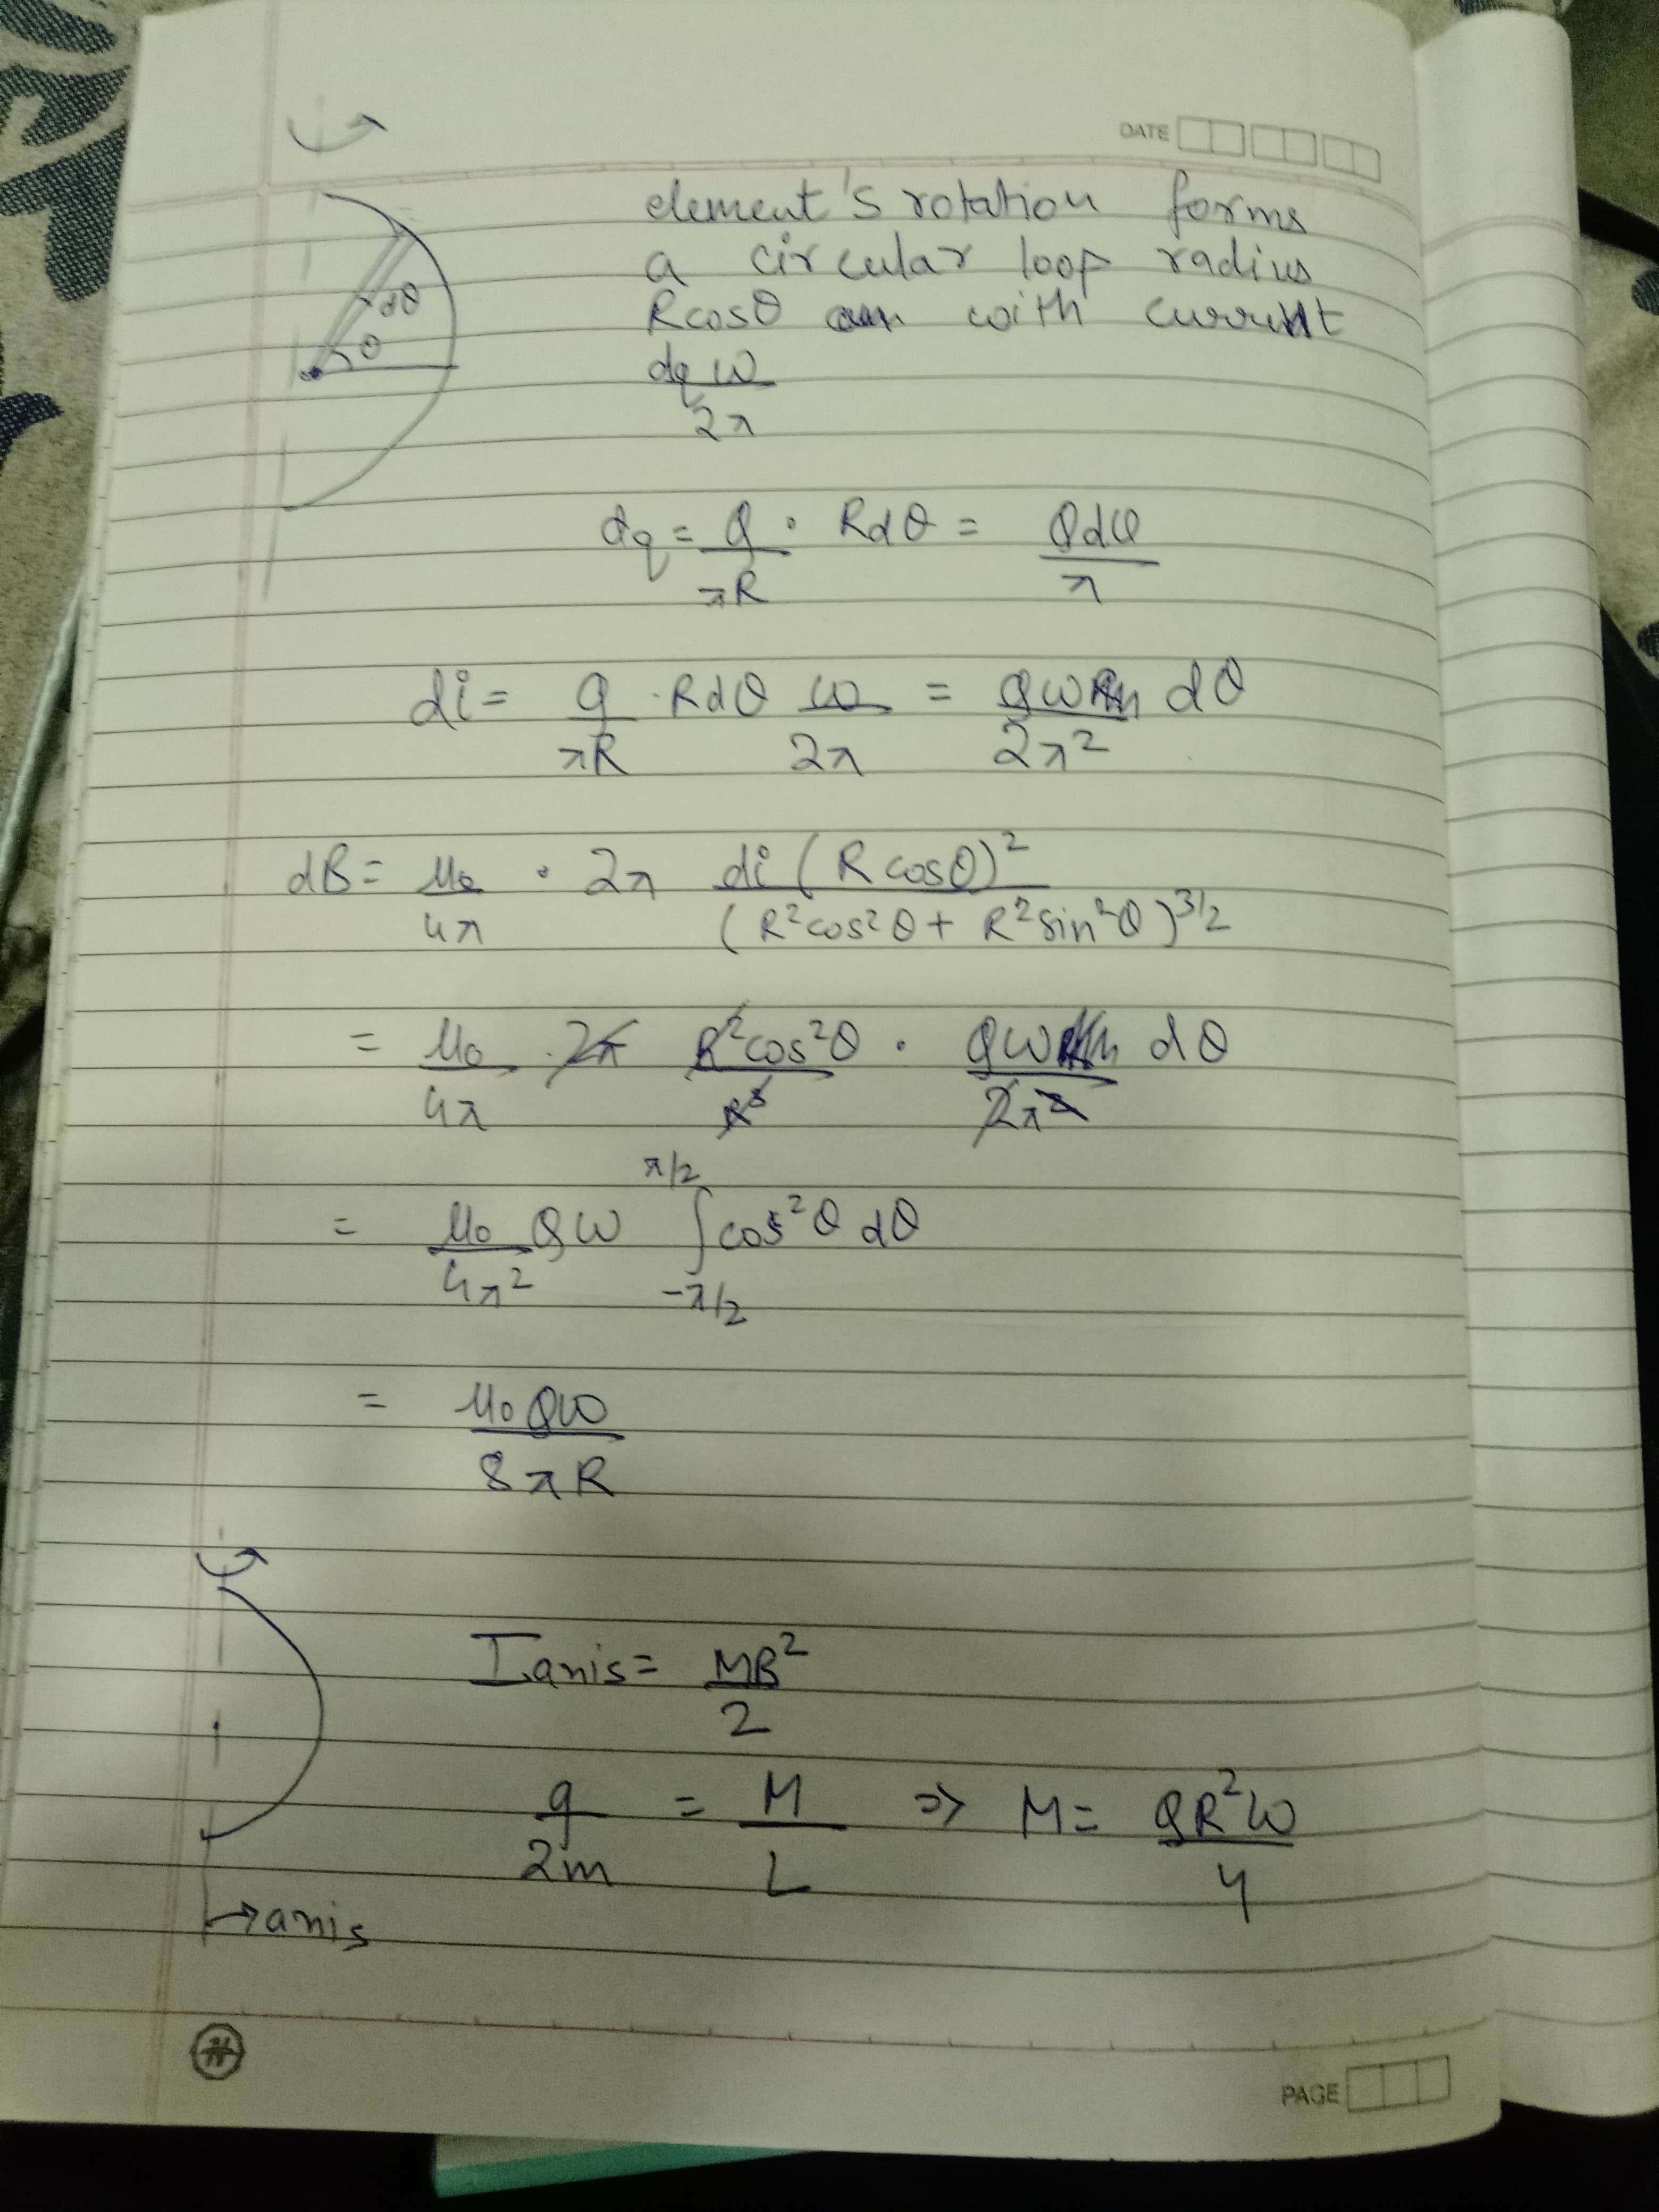 DATE
element's rotation forms
a circular loop radius
Rcosθ with current
dq ω / 2π
dθ
θ
dq = Q / πR · Rdθ = Qdθ / π
di = Q / πR · Rdθ ω / 2π = Qω / 2π² dθ
dB = μ₀ / 4π · 2π di (R cosθ)² / (R²cos²θ + R²sin²θ)^3/2
= μ₀ / 4π · 2π R²cos²θ / R³ · Qω / 2π² dθ
= μ₀ / 4π² Qω ∫ -π/2 π/2 cos²θ dθ
= μ₀ Qω / 8πR
I axis = MR² / 2
q / 2m = M / L => M = QR²ω / 4
→ axis
PAGE